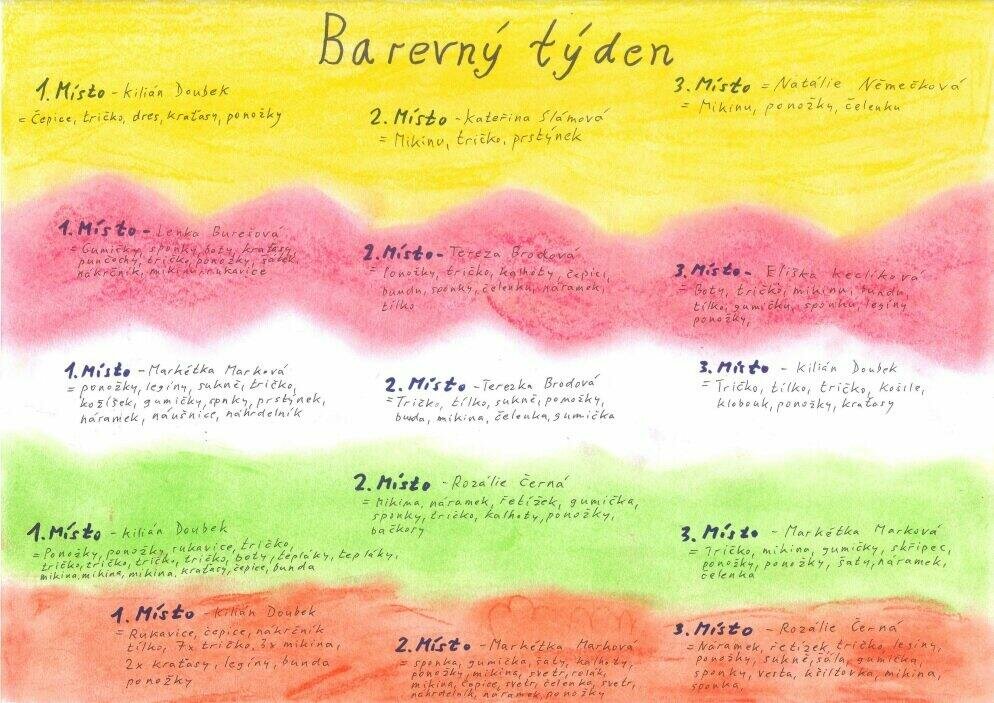 Barevný týden
1. Místo - Kilián Doubek
= Čepice, tričko, dres, kraťasy, ponožky
2. Místo - Kateřina Slámová
= Mikinu, tričko, prstýnek
3. Místo = Natálie Němečková
= Mikinu, ponožky, čelenku
1. Místo - Lenka Burešová
= Gumičky, sponky, boty, kraťasy,
punčochy, tričko, ponožky, šátek
nákrčník, mikinu, rukavice
2. Místo - Tereza Brodová
= Ponožky, tričko, kalhoty, čepici,
bundu, sponky, čelenku, náramek,
tílko
3. Místo - Eliška Keclíková
= Boty, tričko, mikinu, bundu,
tílko, gumičku, sponku, legíny
ponožky,
1. Místo - Markétka Marková
= ponožky, legíny, sukně, tričko,
kožíšek, gumičky, spnky, prstýnek,
náramek, náušnice, náhrdelník
2. Místo - Terezka Brodová
= Tričko, tílko, sukně, ponožky,
bunda, mikina, čelenka, gumička
3. Místo - Kilián Doubek
= Tričko, tílko, tričko, košile,
klobouk, ponožky, kraťasy
1. Místo - Kilián Doubek
= Ponožky, ponožky, rukavice, tričko,
tričko, tričko, tričko, tričko, boty, tepláky, tepláky,
mikina, mikina, mikina, kraťasy, čepice, bunda
2. Místo - Rozálie Černá
= Mikina, náramek, řetízek, gumička,
sponky, tričko, kalhoty, ponožky,
bačkory
3. Místo - Markétka Marková
= Tričko, mikina, gumičky, skřipec,
ponožky, ponožky, šaty, náramek,
čelenka
1. Místo - Kilián Doubek
= Rukavice, čepice, nákrčník
tílko, 7x tričko, 3x mikina,
2x kraťasy, legíny, bunda
ponožky
2. Místo - Markétka Marková
= sponka, gumička, šaty, kalhoty,
ponožky, mikina, svetr, rolák,
mikina, čepice, svetr, čelenka, svetr,
náhrdelník, náramek, ponožky
3. Místo - Rozálie Černá
= Náramek, řetízek, tričko, legíny,
ponožky, sukně, šála, gumička,
sponky, vesta, kšiltovka, mikina,
sponka,